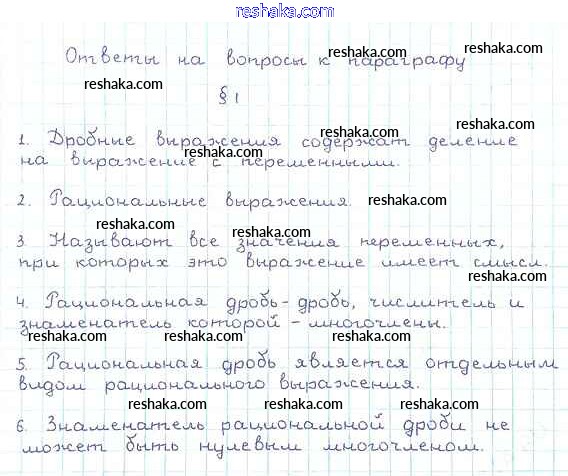 reshaka.com
Ответы на вопросы к параграфу
reshaka.com
reshaka.com
§ 1
reshaka.com
reshaka.com
1. Дробные выражения содержат деление
на выражение с переменными.
reshaka.com
2. Рациональные выражения.
reshaka.com
reshaka.com
reshaka.com
3. Называют все значения переменных,
при которых это выражение имеет смысл.
reshaka.com
4. Рациональная дробь - дробь, числитель и
знаменатель которой - многочлены.
reshaka.com reshaka.com reshaka.com
5. Рациональная дробь является отдельным
видом рационального выражения.
reshaka.com reshaka.com reshaka.com
6. Знаменатель рациональной дроби не
может быть нулевым многочленом.
reshaka.com reshaka.com